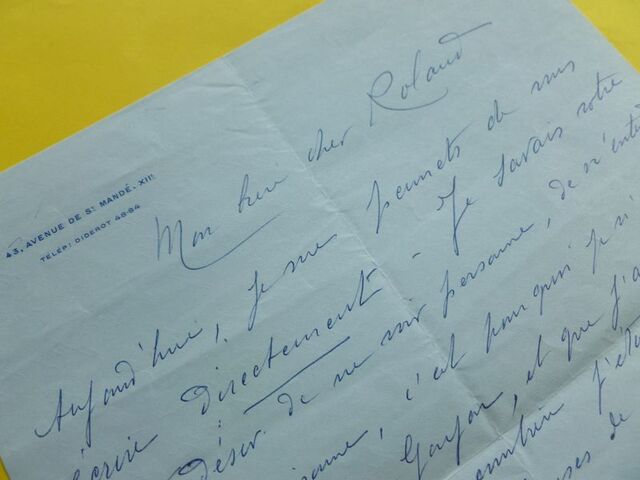 43, AVENUE DE ST MANDÉ. XIIE
TELEP: DIDEROT 48-84
Mon cher Roland
Aujourd'hui, je me permets de vous
écrire directement - Je savais votre
désir de ne voir personne, de n'ent
c'est pourquoi je n'ai
et que j'a
combien j'éta
de